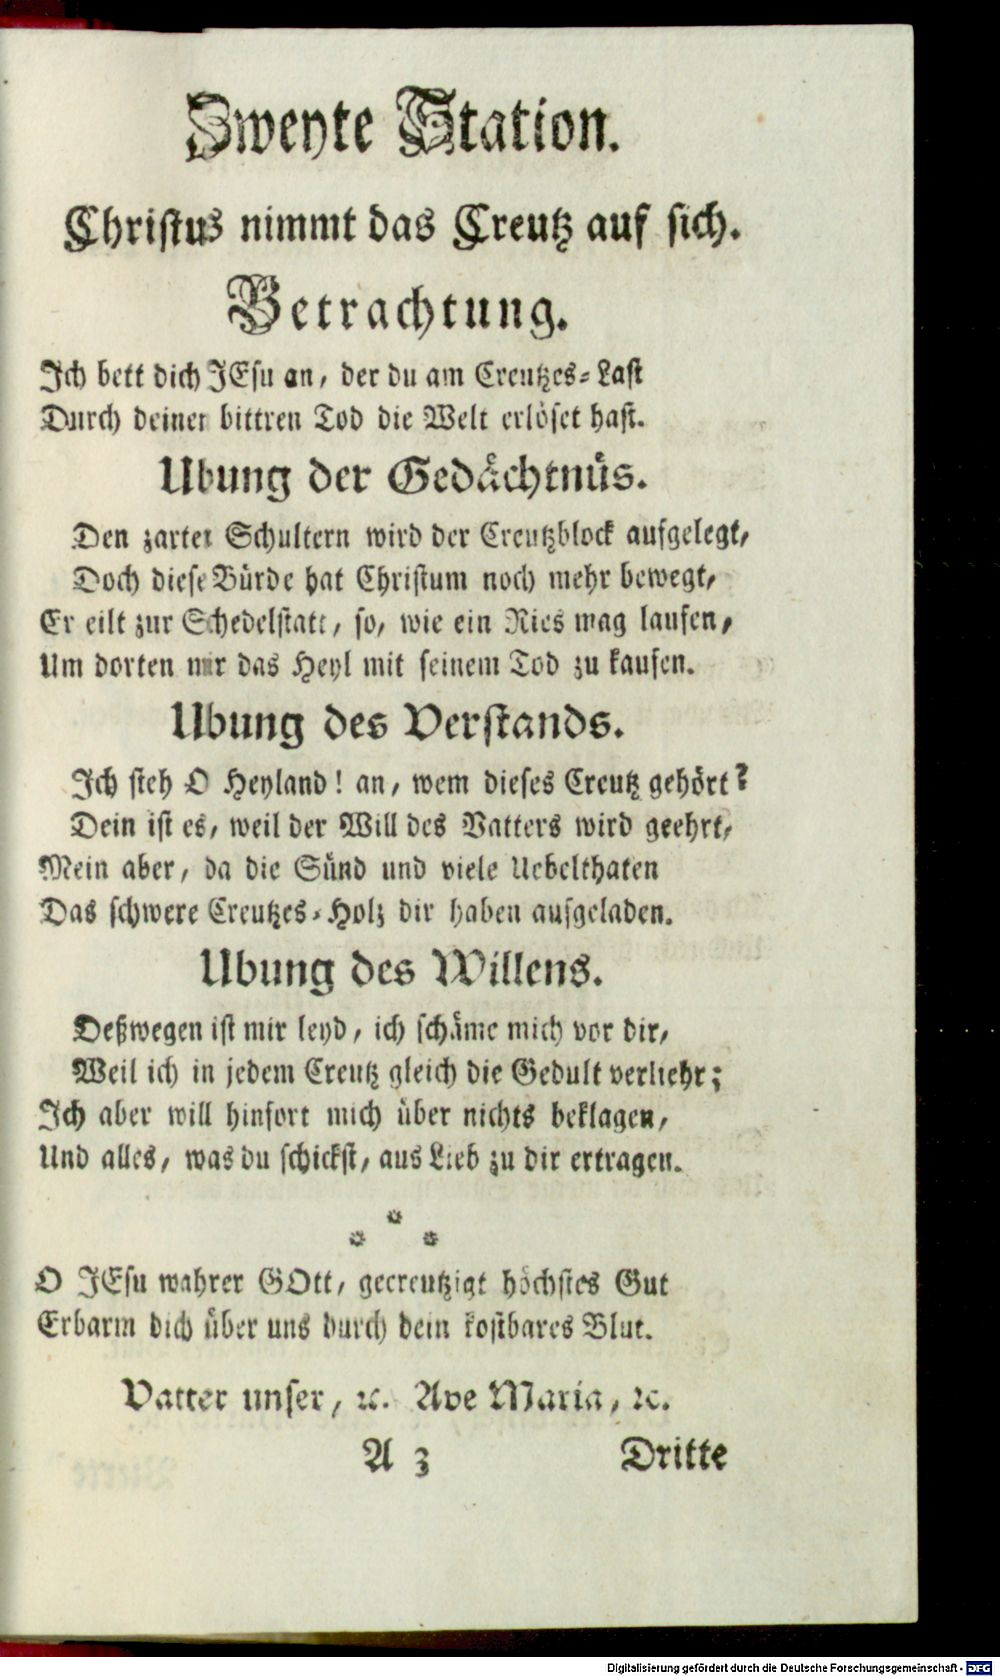 Zweyte Station.
Christus nimmt das Creutz auf sich.
Betrachtung.
Ich bett dich JEsu an, der du am Creutzes-Last
Durch deinen bittren Tod die Welt erlöset hast.
Ubung der Gedächtnüs.
Den zarten Schultern wird der Creutzblock aufgelegt,
Doch diese Bürde hat Christum noch mehr bewegt,
Er eilt zur Schedelstatt, so, wie ein Ries mag laufen,
Um dorten mir das Heyl mit seinem Tod zu kaufen.
Ubung des Verstands.
Ich steh O Heyland! an, wem dieses Creutz gehört?
Dein ist es, weil der Will des Vatters wird geehrt,
Mein aber, da die Sünd und viele Uebelthaten
Das schwere Creutzes-Holz dir haben aufgeladen.
Ubung des Willens.
Deßwegen ist mir leyd, ich schäme mich vor dir,
Weil ich in jedem Creutz gleich die Gedult verliehr;
Ich aber will hinfort mich über nichts beklagen,
Und alles, was du schickst, aus Lieb zu dir ertragen.
O JEsu wahrer GOtt, gecreutzigt höchstes Gut
Erbarm dich über uns durch dein kostbares Blut.
Vatter unser, ꝛc. Ave Maria, ꝛc.
A 3 Dritte
Digitalisierung gefördert durch die Deutsche Forschungsgemeinschaft - DFG